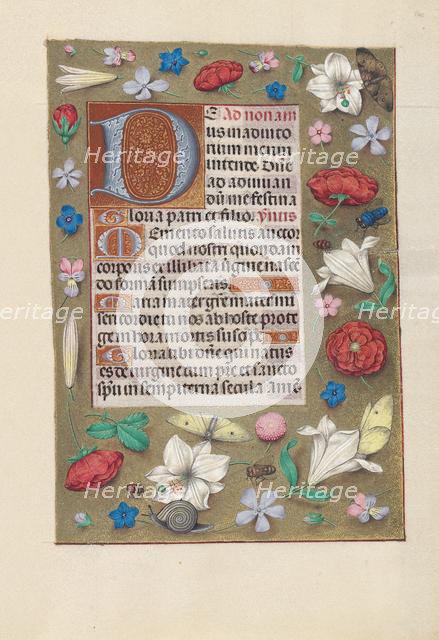 D Ad nonam
us in adiuto
rium meum
intende Dne
ad adiuuan
dum me festina
Gloria patri et filio. ymus
Memento salutis auctor
quod nostri quondam
corporis ex illibata uirgine nascē
do formā sumpseris
Maria mater grē mater mi
sericordie tu nos ab hoste prote
ge in hora mortis suscipe
Gloria tibi dne qui natus
es de uirgine cum pre et sancto
spu in sempiterna secula amē
Heritage
Heritage
Heritage
Heritage
Heritage
Heritage
Heritage